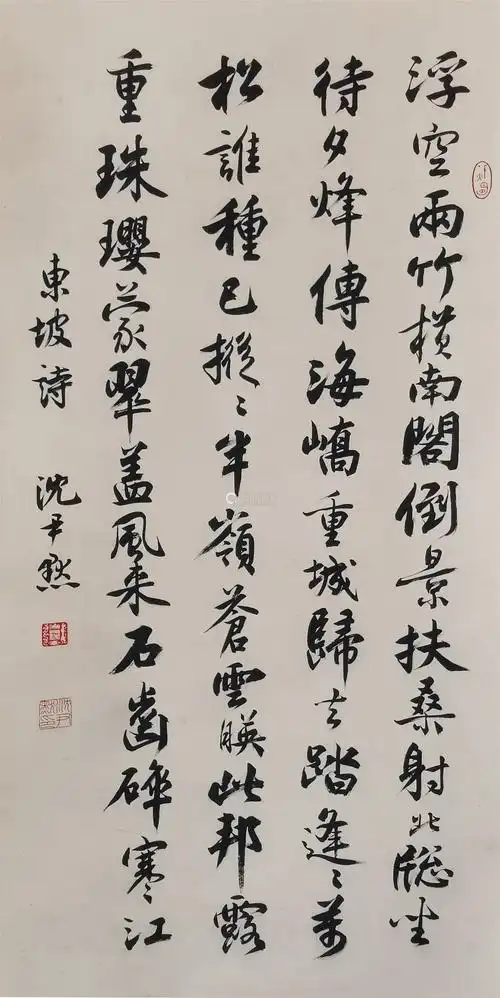 浮空兩竹橫南閣倒景扶桑射北牕坐
待夕烽傳海嶠重城歸去踏逢〻萬
松誰種已摐〻半嶺蒼雲暎此邦露
重珠瓔蒙翠蓋風來石齒碎寒江
東坡詩 沈尹默